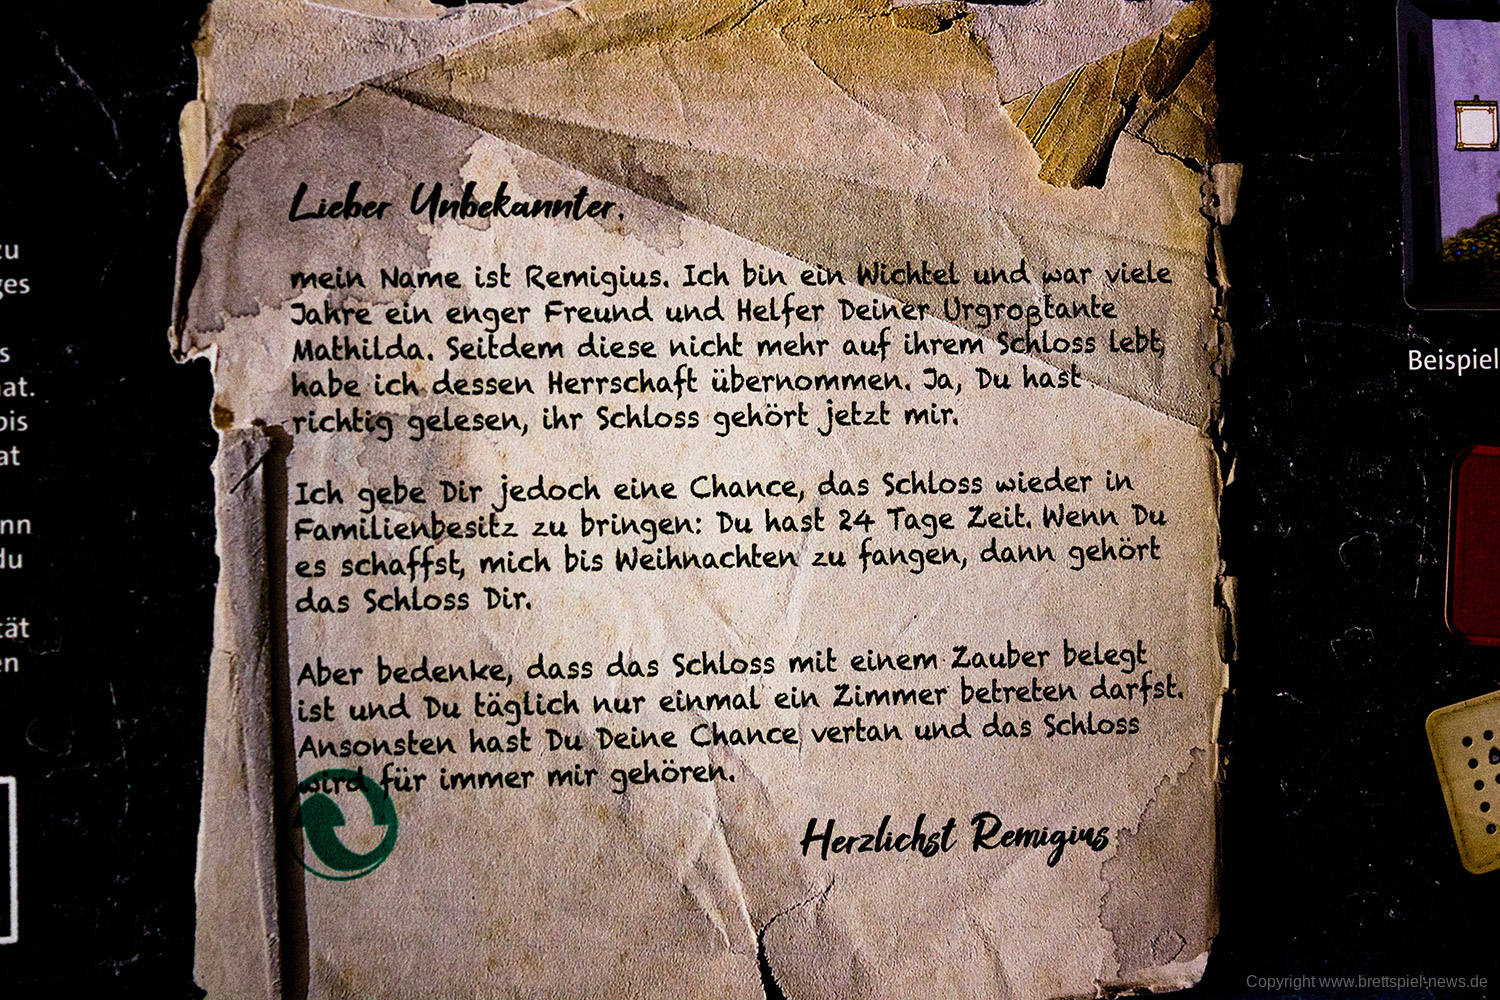 zu
ges
s
at.
bis
at
nn
du
tät
en
Lieber Unbekannter,
mein Name ist Remigius. Ich bin ein Wichtel und war viele
Jahre ein enger Freund und Helfer Deiner Urgroßtante
Mathilda. Seitdem diese nicht mehr auf ihrem Schloss lebt,
habe ich dessen Herrschaft übernommen. Ja, Du hast
richtig gelesen, ihr Schloss gehört jetzt mir.
Ich gebe Dir jedoch eine Chance, das Schloss wieder in
Familienbesitz zu bringen: Du hast 24 Tage Zeit. Wenn Du
es schaffst, mich bis Weihnachten zu fangen, dann gehört
das Schloss Dir.
Aber bedenke, dass das Schloss mit einem Zauber belegt
ist und Du täglich nur einmal ein Zimmer betreten darfst.
Ansonsten hast Du Deine Chance vertan und das Schloss
wird für immer mir gehören.
Herzlichst Remigius
Beispiel
Copyright www.brettspiel-news.de